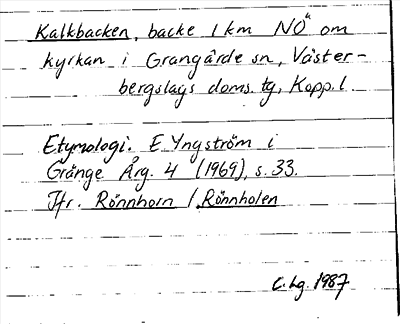 Kalkbacken, backe 1 km NO om
kyrkan i Grangärde sn, Väster-
bergslags doms. tg, Kopp. l.
Etymologi: E Yngström i
Gränge Årg. 4 (1969), s. 33.
Jfr. Rönnhorn / Rönnholen
C. Lg. 1987